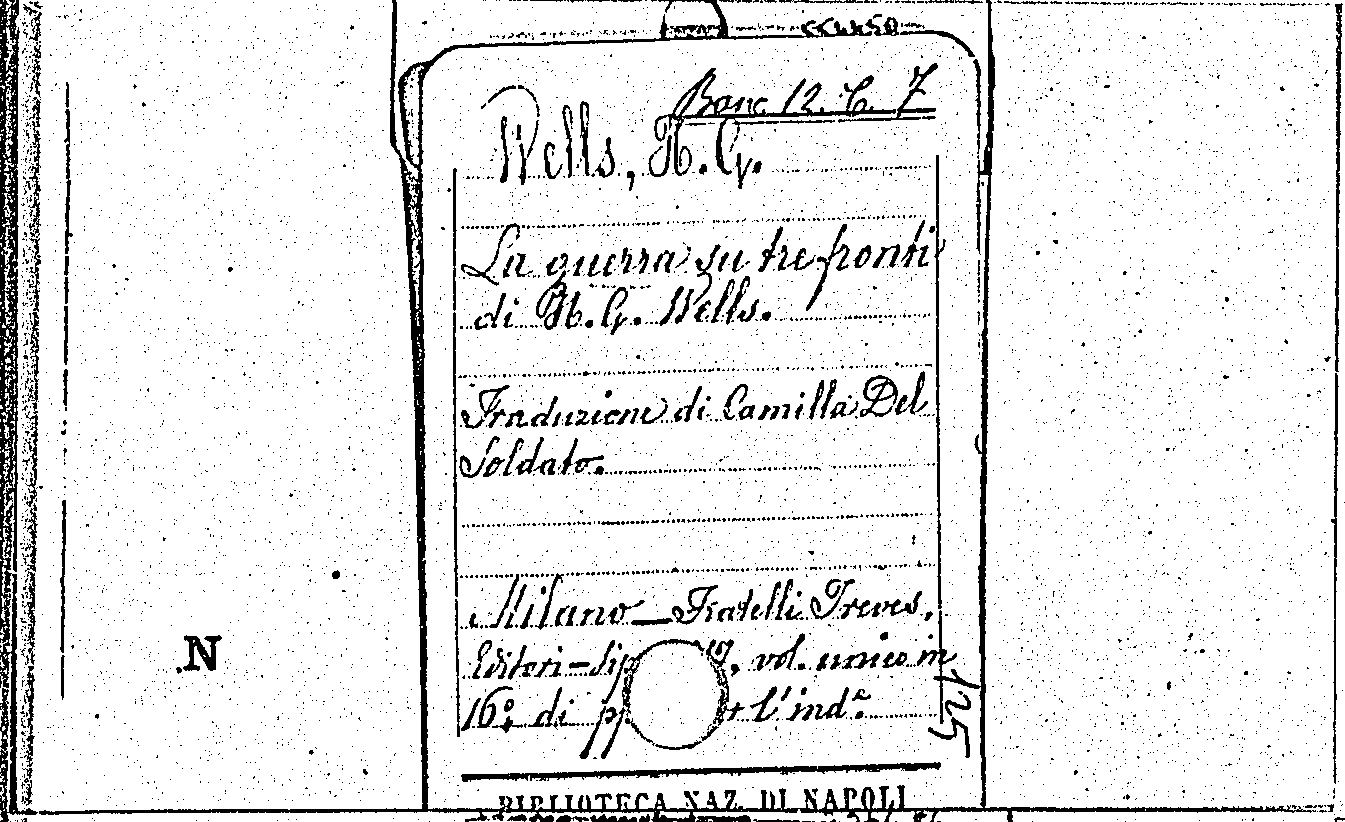 Banc. 12. C. 7
Wells, H. G.
La guerra su tre fronti
di H. G. Wells.
Traduzione di Camilla Del
Soldato.
Milano – Fratelli Treves,
Editori – Tip 17, vol. unico in
16º, di pp + l'indº
125
N
BIBLIOTECA NAZ. DI NAPOLI